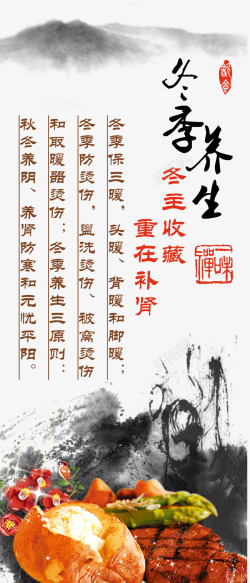 冬季养生
冬主收藏
重在补肾
冬季保三暖，头暖、背暖和脚暖；
冬季防烫伤，盥洗烫伤、被窝烫伤
和取暖器烫伤；冬季养生三原则：
秋冬养阴、养肾防寒和无忧平阳。